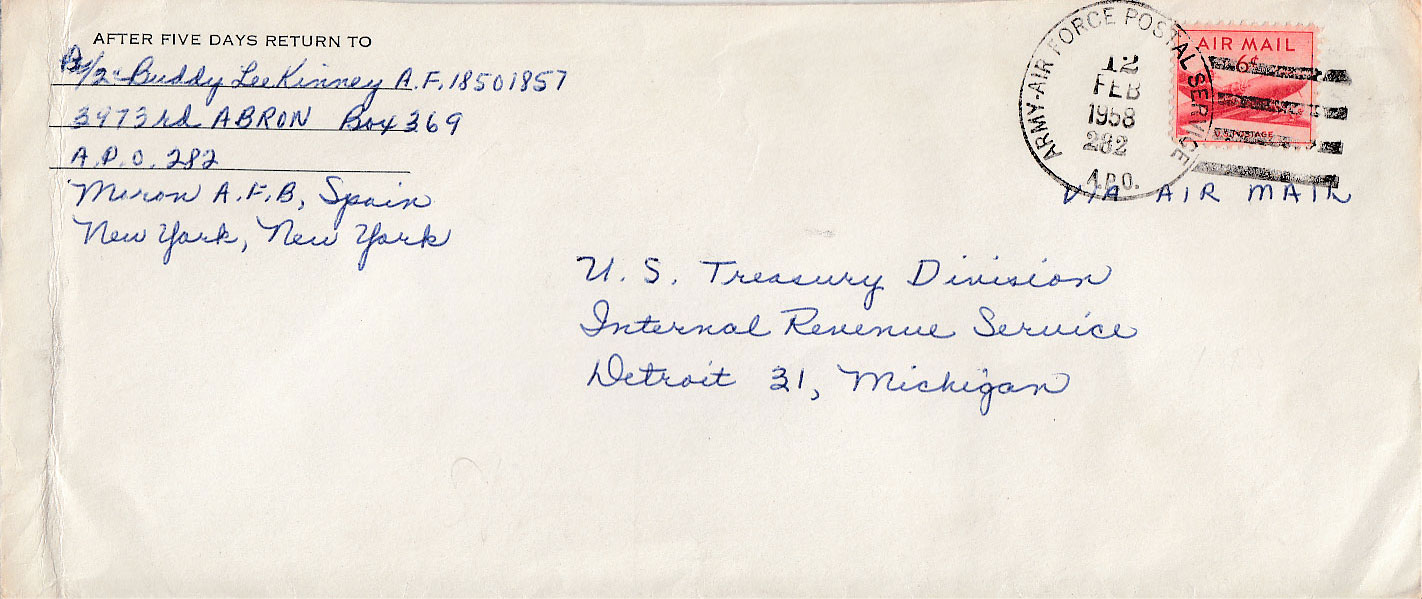 AFTER FIVE DAYS RETURN TO
A/2c Buddy Lee Kinney A.F. 18501857
3973rd ABRON Box 369
A.P.O. 282
Moron A.F.B, Spain
New York, New York
ARMY-AIR FORCE POSTAL SERVICE
12
FEB
1958
282
A.P.O.
AIR MAIL
6¢
U.S. POSTAGE
VIA AIR MAIL
U. S. Treasury Division
Internal Revenue Service
Detroit 31, Michigan